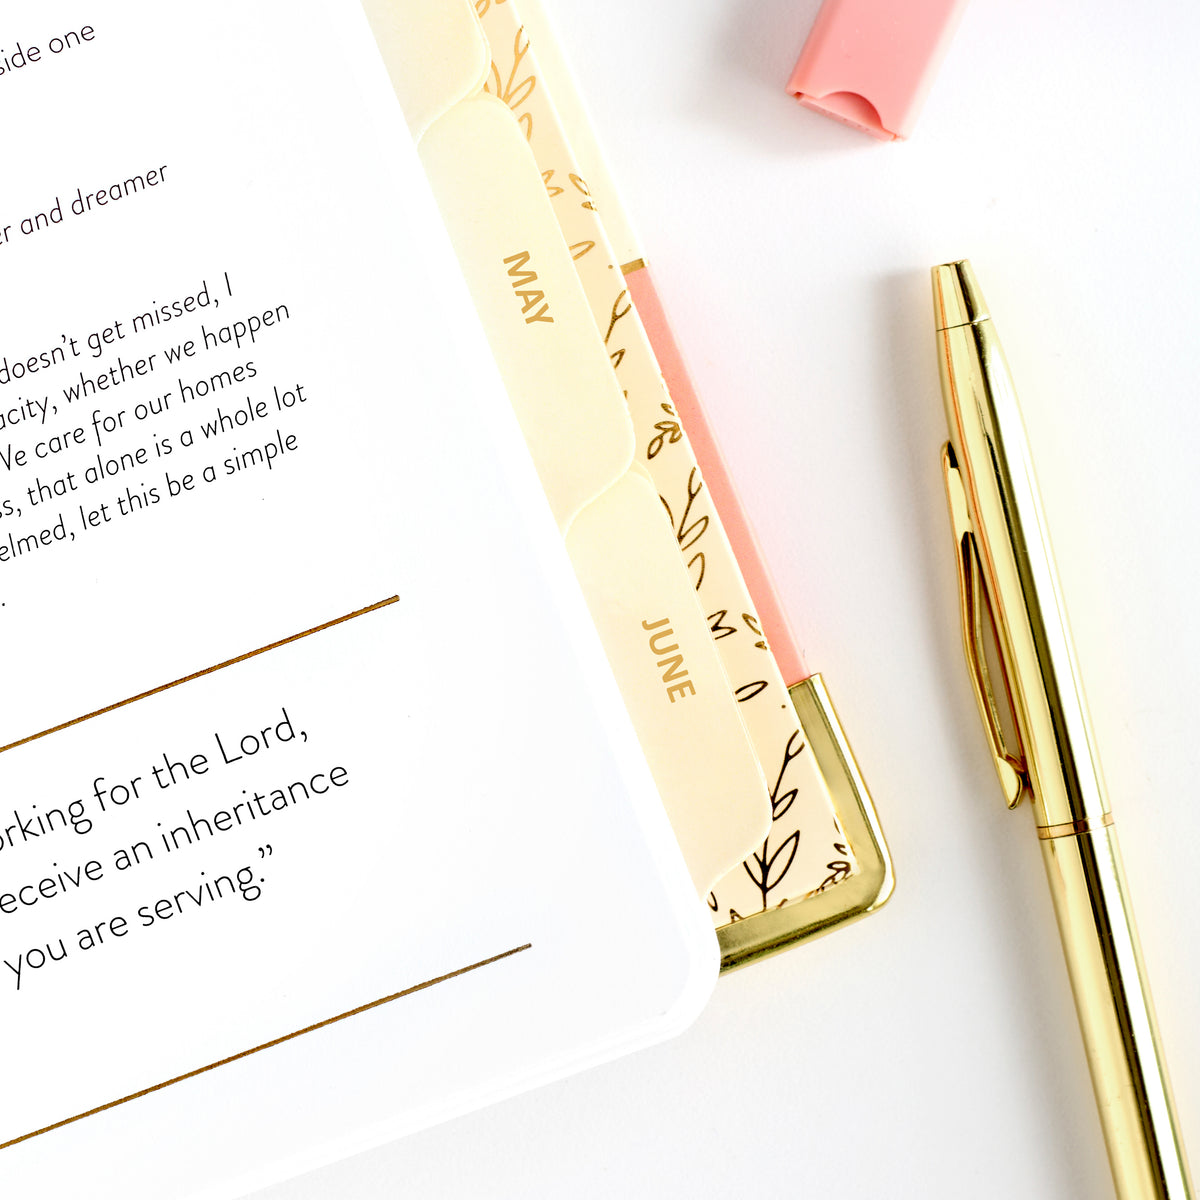 side one
and dreamer
doesn't get missed, I
whether we happen
We care for our homes
that alone is a whole lot
let this be a simple
for the Lord,
receive an inheritance
you are serving.”
MAY
JUNE